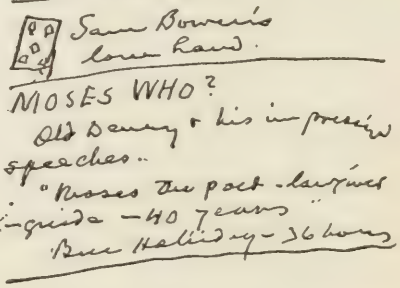 Sam Bowen's
lone hand.
MOSES WHO?
Old Denny & his impressive
speeches..
"Moses the poet - lawgiver
- 40 years"
Ben Holliday - 36 hours